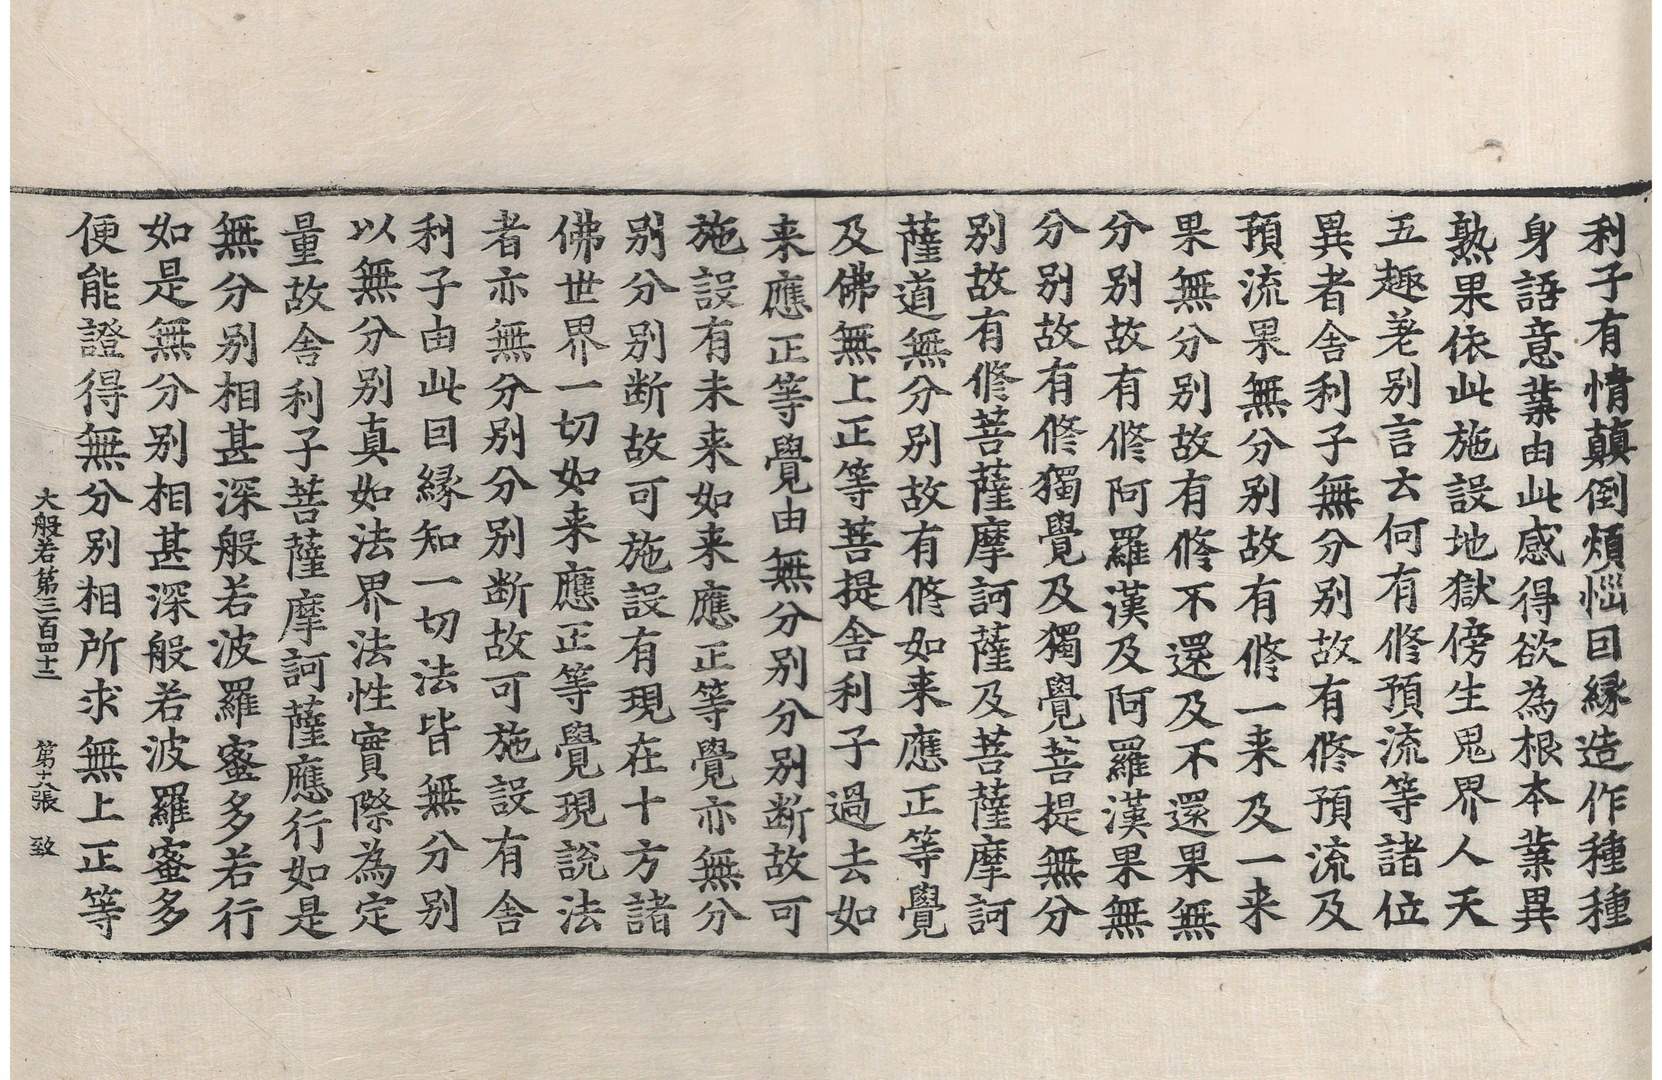 利子有情顛倒煩惱因緣造作種種
身語意業由此感得欲為根本業異
熟果依此施設地獄傍生鬼界人天
五趣差別言去何有修預流等諸位
異者舍利子無分別故有修預流及
預流果無分別故有修一来及一来
果無分別故有修不還及不還果無
分別故有修阿羅漢及阿羅漢果無
分別故有修獨覺及獨覺菩提無分
別故有修菩薩摩訶薩及菩薩摩訶
薩道無分別故有修如来應正等覺
及佛無上正等菩提舍利子過去如
来應正等覺由無分別分別断故可
施設有未来如来應正等覺亦無分
別分別断故可施設有現在十方諸
佛世界一切如来應正等覺現說法
者亦無分別分別断故可施設有舍
利子由此因緣知一切法皆無分別
以無分別真如法界法性實際為定
量故舍利子菩薩摩訶薩應行如是
無分別相甚深般若波羅蜜多若行
如是無分別相甚深般若波羅蜜多
便能證得無分別相所求無上正等
大般若第三百四十二 第十六張 致